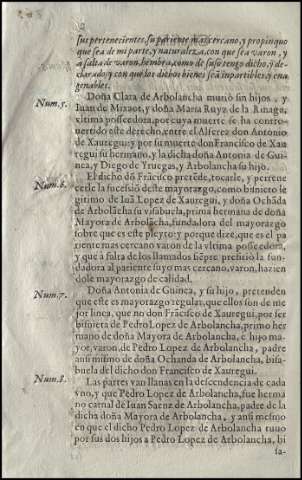 2
sus pertenecientes, su pariente mas cercano, y propinquo
que sea de mi parte, y naturaleza, con que sea varon, y
a falta de varon, hembra, como de suso tengo dicho, y de-
clarado, y con que los dichos bienes seã inpartibles, y ena
genables.
Num. 5. Doña Clara de Arbolancha murio sin hijos, y
Iuan de Mixaos, y doña Maria Ruyz de la
vltima posseedora, por cuya muerte se ha contro-
uertido este derecho, entre el Alferez don Antonio
de Xauregui: y por su muerte don Francisco de Xau
regui su hermano, y la dicha doña Antonia de Gui-
nea, y Diego de Yruegas, y Arbolancha su hijo.
Num. 6. El dicho dõ Frãcisco pretẽde, tocarle, y pertene
cerle la sucessiõ deste mayorazgo, como bisnieto le
gitimo de Iuã Lopez de Xauregui, y doña Ochãda
de Arbolãcha su visabuela, prima hermana de doña
Mayora de Arbolãcha, fundadora del mayorazgo
sobre que es este pleyto: y porque dize, que es el pa
riente mas cercano varon de la vltima posseedora,
y que a falta de los llamados siẽpre prefirio la fun-
dadora al pariente suyo mas cercano, varon, hazien
dole mayorazgo de calidad.
Num. 7. Doña Antonia de Guinea, y su hijo, pretenden
que este es mayorazgo regular, que ellos son de me
jor linea, que no don Frãcisco de Xauregui, por ser
bisnieta de Pedro Lopez de Arbolancha, primo her
mano de doña Mayora de Arbolancha, e hijo ma-
yor, varon, de Pedro Lopez de Arbolancha, padre
ansi mismo de doña Ochanda de Arbolancha, bisa-
buela del dicho don Francisco de Xauregui.
Num. 8. Las partes van llanas en la descendencia de cada
vno, y que Pedro Lopez de Arbolancha, fue herma
no carnal de Iuan Saenz de Arbolancha, padre de la
dicha doña Mayora de Arbolancha, y ansi mesmo
en que el dicho Pedro Lopez de Arbolancha tuuo
por sus dos hijos a Pedro Lopez de Arbolancha, bi
sa-